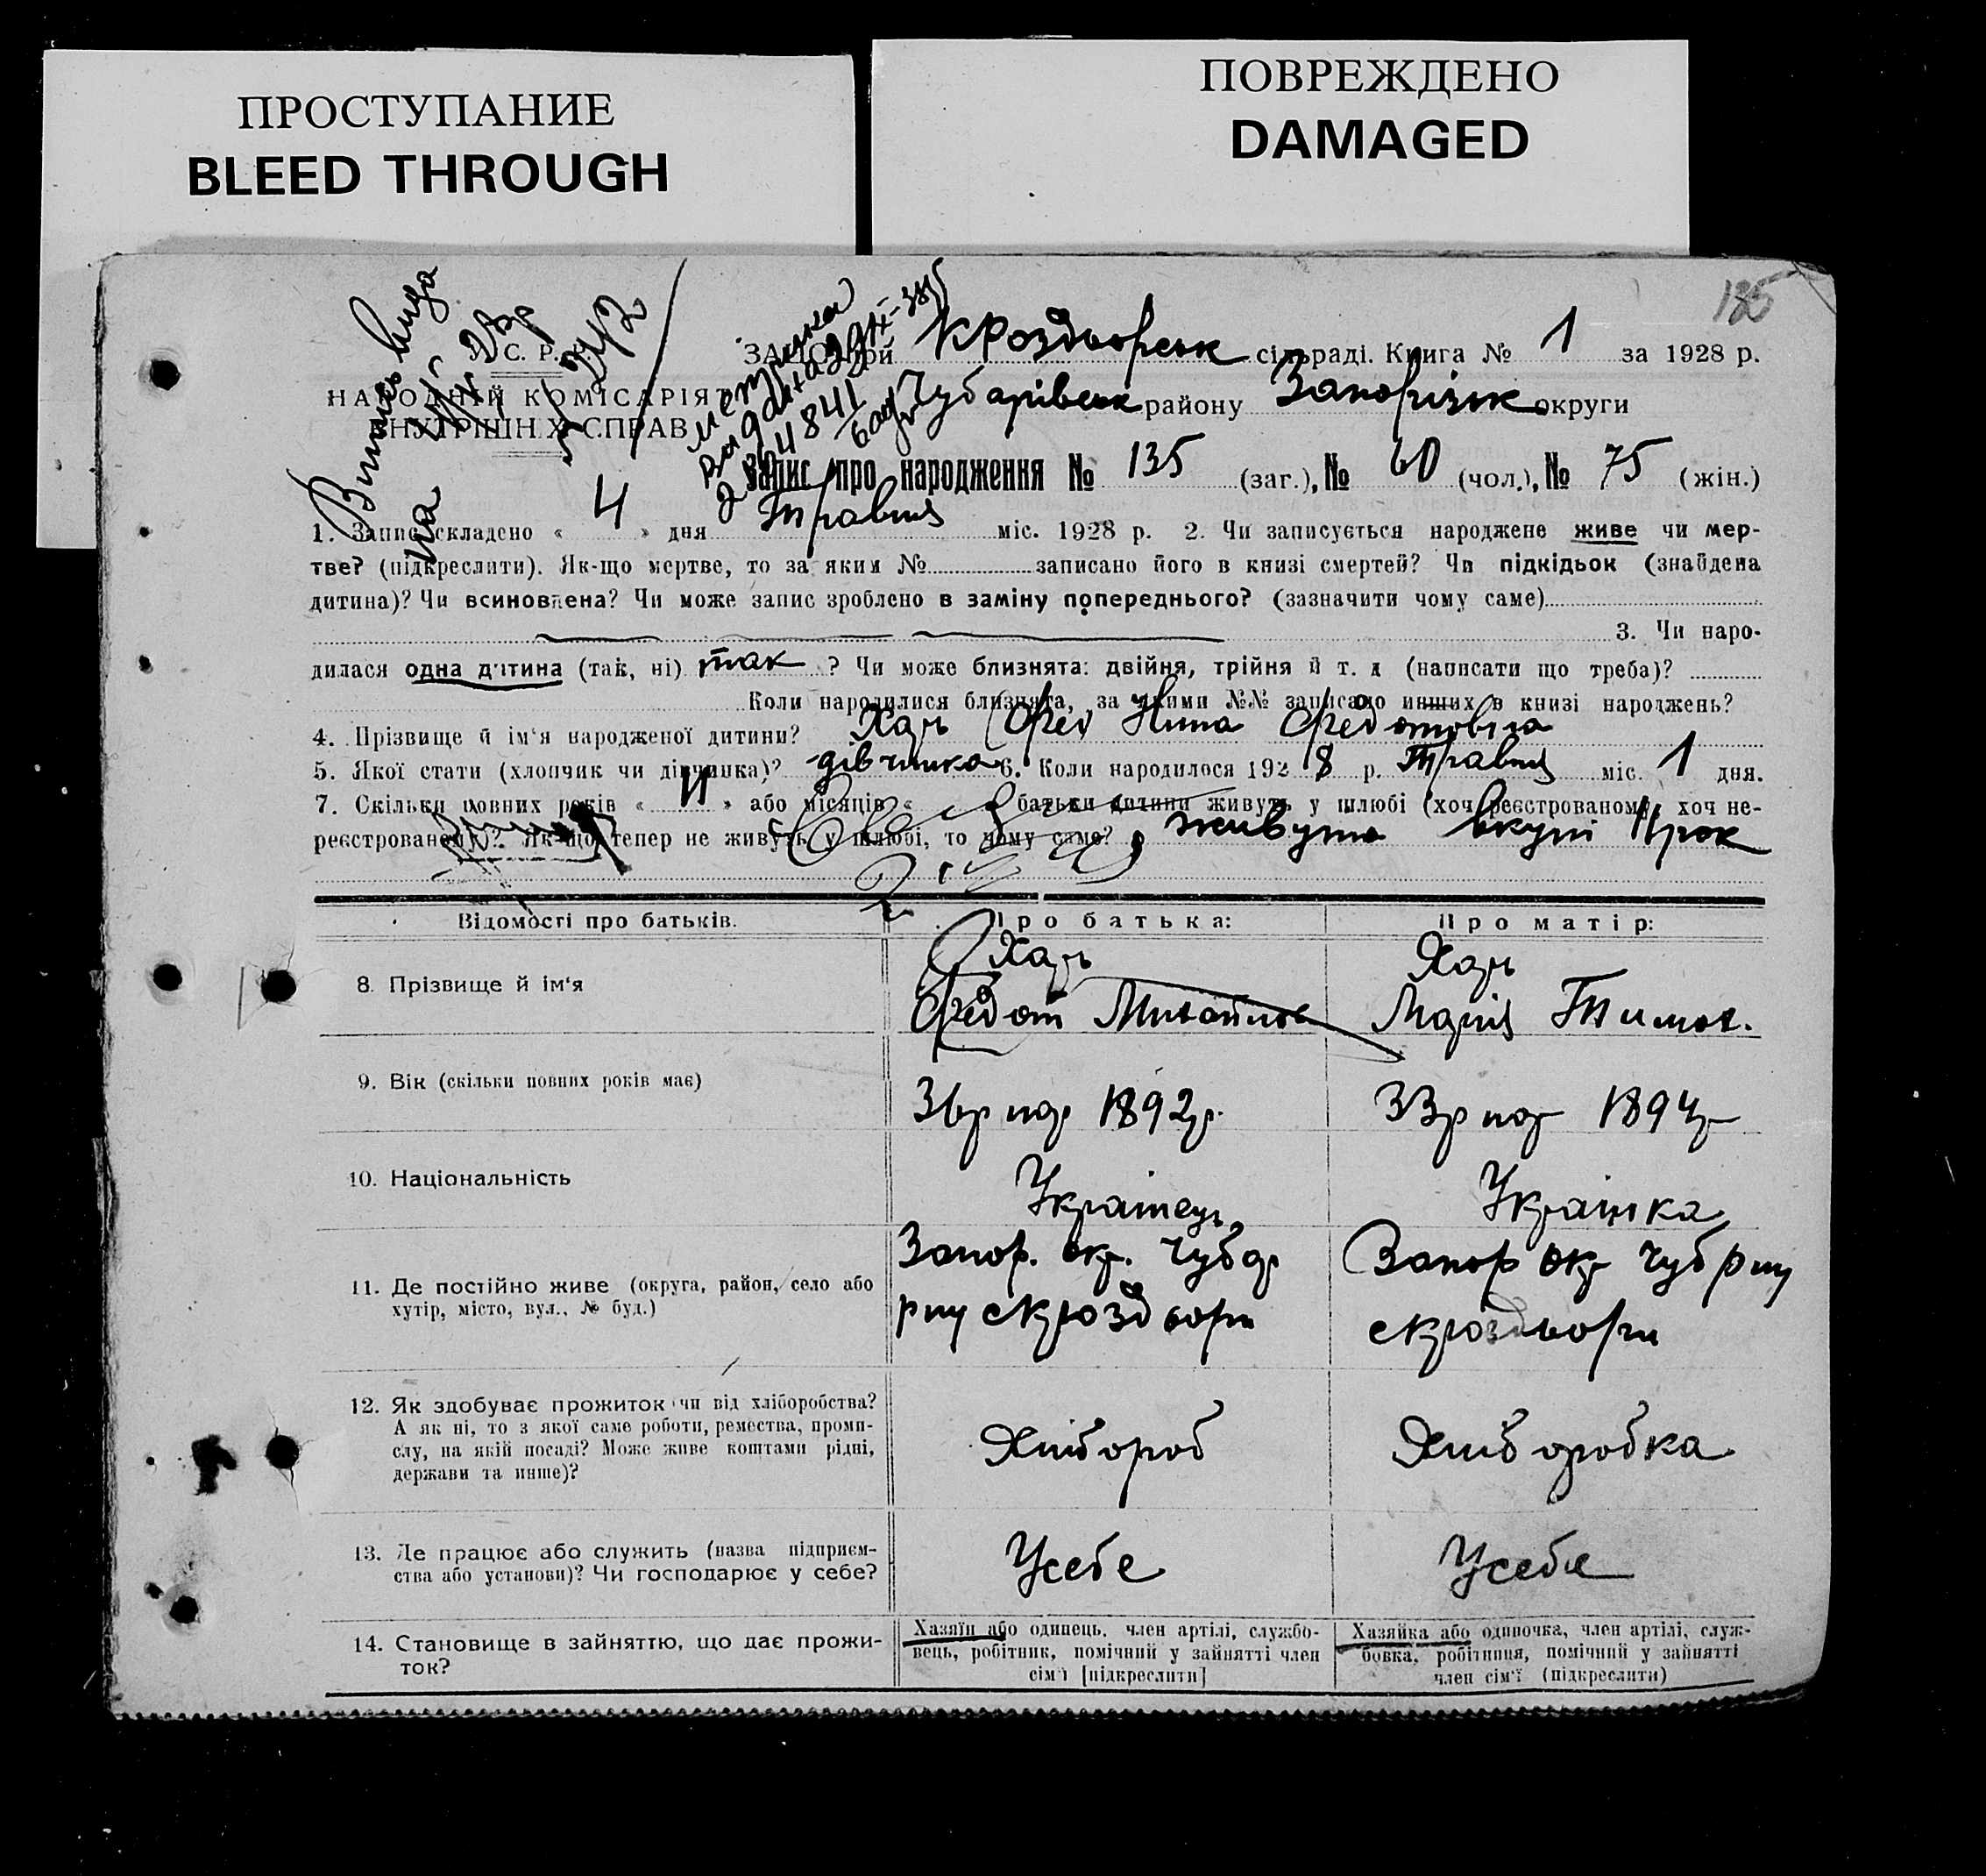 ПРОСТУПАНИЕ
BLEED THROUGH
ПОВРЕЖДЕНО
DAMAGED
135
С. Р. сільраді. Книга № 1 за 1928 р.
НАРОДНІЙ КОМІСАРІЯТ Чубарівськ району Запорізьк округи
ВНУТРІШНІХ СПРАВ
Запис про народження № 135 (заг.), № 60 (чол.), № 75 (жін.)
1. Запис складено « 4 » дня Травня міс. 1928 р. 2. Чи записується народжене живе чи мер-
тве? (підкреслити). Як-що мертве, то за яким № записано його в книзі смертей? Чи підкідьок (знайдена
дитина)? Чи всиновлена? Чи може запис зроблено в заміну попереднього? (зазначити чому саме)
3. Чи наро-
дилася одна дитина (так, ні) так ? Чи може близнята: двійня, трійня й т. д (написати що треба)?
Коли народилися близнята, за якими №№ записано инших в книзі народжень?
4. Прізвище й ім'я народженої дитини? Харь Нина Федотовна
5. Якої стати (хлопчик чи дівчинка)? дівчинка 6. Коли народилося 192 8 р. Травня міс. 1 дня.
7. Скільки повних років « 11 » або місяців « батьки дитини живуть у шлюбі (хоч реєстрованому, хоч не-
реєстрованому)? Як-що тепер не живуть у шлюбі, то чому саме? живуть вкупі 11 рок
Відомості про батьків. Про батька: Про матір:
8. Прізвище й ім'я Харь Харь
Федот Михайлов Марія Тимоф.
9. Вік (скільки повних років має) 36р нар 1892р. 33р нар 1894р
10. Національність Українець Українка
11. Де постійно живе (округа, район, село або Запор. окр. Чубар Запор окр Чуб рну
хутір, місто, вул., № буд.) рну скроздвори скроздвори
12. Як здобуває прожиток чи від хліборобства?
А як ні, то з якої саме роботи, ремества, проми- Хлібороб Хліборобка
слу, на якій посаді? Може живе коштами рідні,
держави та инше)?
13. Де працює або служить (назва підприєм- Усебе Усебе
ства або установи)? Чи господарює у себе?
14. Становище в зайняттю, що дає прожи- Хазяїн або одинець, член артілі, службо- Хазяйка або одиночка, член артілі, служ-
ток? вець, робітник, помічний у зайнятті член бовка, робітниця, помічний у зайнятті
сім'ї [підкреслити] член сім'ї (підкреслити)